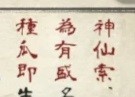 神仙索
為有盛名
種瓜即生